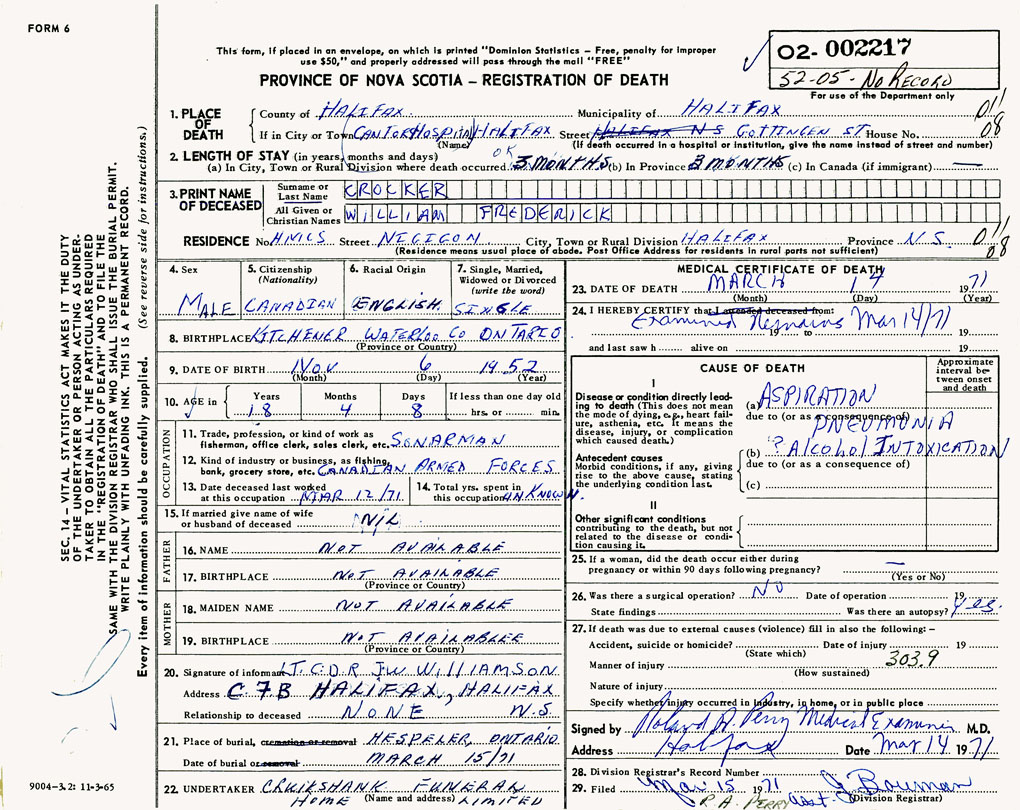 FORM 6
This form, if placed in an envelope, on which is printed "Dominion Statistics – Free, penalty for improper
use $50," and properly addressed will pass through the mail "FREE"
PROVINCE OF NOVA SCOTIA – REGISTRATION OF DEATH
02- 002217
52-05- No Record
For use of the Department only
1. PLACE OF DEATH County of HALIFAX Municipality of HALIFAX 011
If in City or Town CANFORHOSPITAL HALIFAX Street HALIFAX N S GOTTINGEN ST House No. 08
(Name) (If death occurred in a hospital or institution, give the name instead of street and number)
2. LENGTH OF STAY (in years, months and days) OK
(a) In City, Town or Rural Division where death occurred 3 MONTHS (b) In Province 3 MONTHS (c) In Canada (if immigrant) —
3. PRINT NAME OF DECEASED Surname or Last Name CROCKER
All Given or Christian Names WILLIAM FREDERICK
RESIDENCE No. HMCS Street NIGIGON City, Town or Rural Division HALIFAX Province N S. 011 08
(Residence means usual place of abode. Post Office Address for residents in rural parts not sufficient)
4. Sex MALE
5. Citizenship (Nationality) CANADIAN
6. Racial Origin ENGLISH
7. Single, Married, Widowed or Divorced (write the word) SINGLE
8. BIRTHPLACE KITCHENER WATERLOO CO ONTARIO
(Province or Country)
9. DATE OF BIRTH NOV. 6 1952
(Month) (Day) (Year)
10. AGE in Years 18 Months 4 Days 8 If less than one day old hrs. or min.
OCCUPATION
11. Trade, profession, or kind of work as fishermen, office clerk, sales clerk, etc. SONARMAN
12. Kind of industry or business, as fishing, bank, grocery store, etc. CANADIAN ARMED FORCES
13. Date deceased last worked at this occupation MAR 12/71
14. Total yrs. spent in this occupation UNKNOWN.
15. If married give name of wife or husband of deceased NIL
FATHER
16. NAME NOT AVAILABLE
17. BIRTHPLACE NOT AVAILABLE
(Province or Country)
MOTHER
18. MAIDEN NAME NOT AVAILABLE
19. BIRTHPLACE NOT AVAILABLE
(Province or Country)
20. Signature of informant LT. CDR J.W WILLIAMSON
Address C 7 B HALIFAX, HALIFAX
Relationship to deceased NONE N.S.
21. Place of burial, cremation or removal HESPELER, ONTARIO
Date of burial or removal MARCH 15/71
22. UNDERTAKER CRUIKSHANK FUNERAL
HOME (Name and address) LIMITED
MEDICAL CERTIFICATE OF DEATH
23. DATE OF DEATH MARCH 14 1971
(Month) (Day) (Year)
24. I HEREBY CERTIFY that I attended deceased from:
Examined Remains Mar 14/71
19 19
and last saw h alive on 19
CAUSE OF DEATH
Approximate interval between onset and death
I
Disease or condition directly leading to death (This does not mean the mode of dying, e.g., heart failure, asthenia, etc. It means the disease, injury, or complication which caused death.)
(a) ASPIRATION
due to (or as a consequence of)
PNEUMONIA
Antecedent causes
Morbid conditions, if any, giving rise to the above cause, stating the underlying condition last.
(b) ? Alcohol INTOXICATION
due to (or as a consequence of)
(c)
II
Other significant conditions
contributing to the death, but not related to the disease or condition causing it.
25. If a woman, did the death occur either during pregnancy or within 90 days following pregnancy? —
(Yes or No)
26. Was there a surgical operation? NO Date of operation 19
State findings Was there an autopsy? Yes.
27. If death was due to external causes (violence) fill in also the following: –
Accident, suicide or homicide? Date of injury 19
(State which) 303.9
Manner of injury
(How sustained)
Nature of injury
Specify whether injury occurred in industry, in home, or in public place
Signed by Roland A. Perry Medical Examiner M.D.
Address Halifax Date Mar 14 1971
28. Division Registrar's Record Number
29. Filed Mar 15 1971 J Bauman
R. A. PERRY Asst. (Division Registrar)
SEC. 14 – VITAL STATISTICS ACT MAKES IT THE DUTY
OF THE UNDERTAKER OR PERSON ACTING AS UNDER-
TAKER TO OBTAIN ALL THE PARTICULARS REQUIRED
IN THE "REGISTRATION OF DEATH" AND TO FILE THE
SAME WITH THE DIVISION REGISTRAR WHO SHALL ISSUE THE BURIAL PERMIT.
WRITE PLAINLY WITH UNFADING INK. THIS IS A PERMANENT RECORD.
Every item of information should be carefully supplied. (See reverse side for instructions.)
9004-3.2: 11-3-65